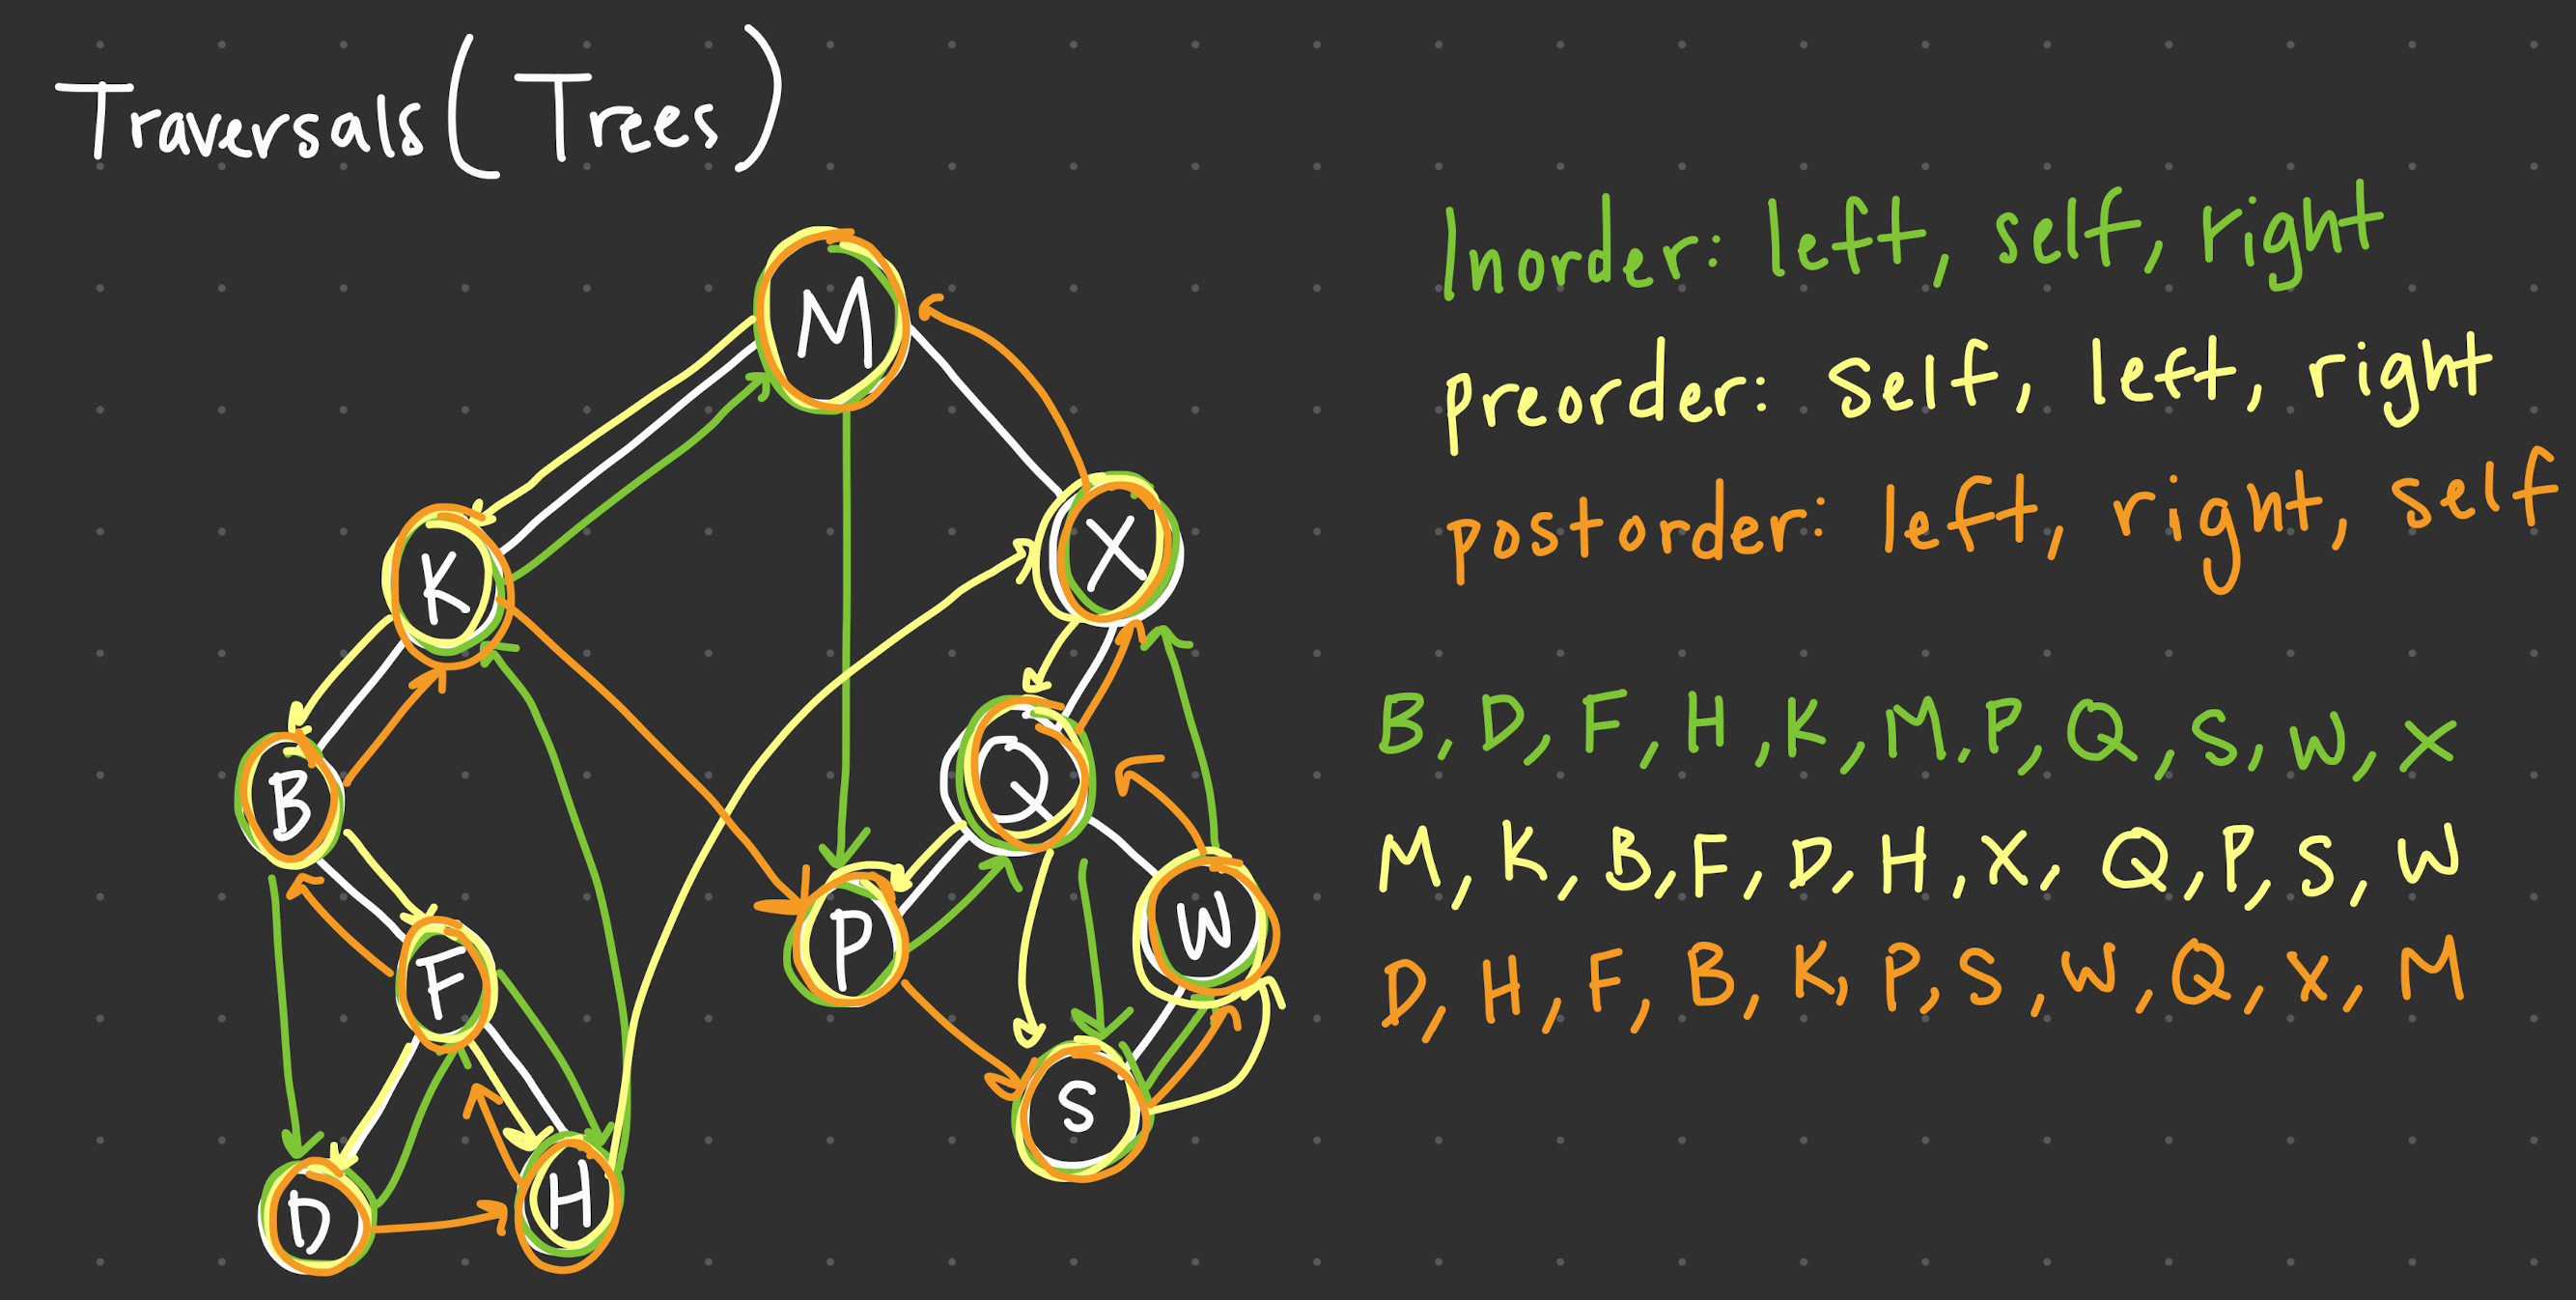 Traversals (Trees)
Inorder: left, self, right
preorder: self, left, right
postorder: left, right, self
M
K
X
B
Q
F
P
W
D
H
S
B, D, F, H, K, M, P, Q, S, W, X
M, K, B, F, D, H, X, Q, P, S, W
D, H, F, B, K, P, S, W, Q, X, M